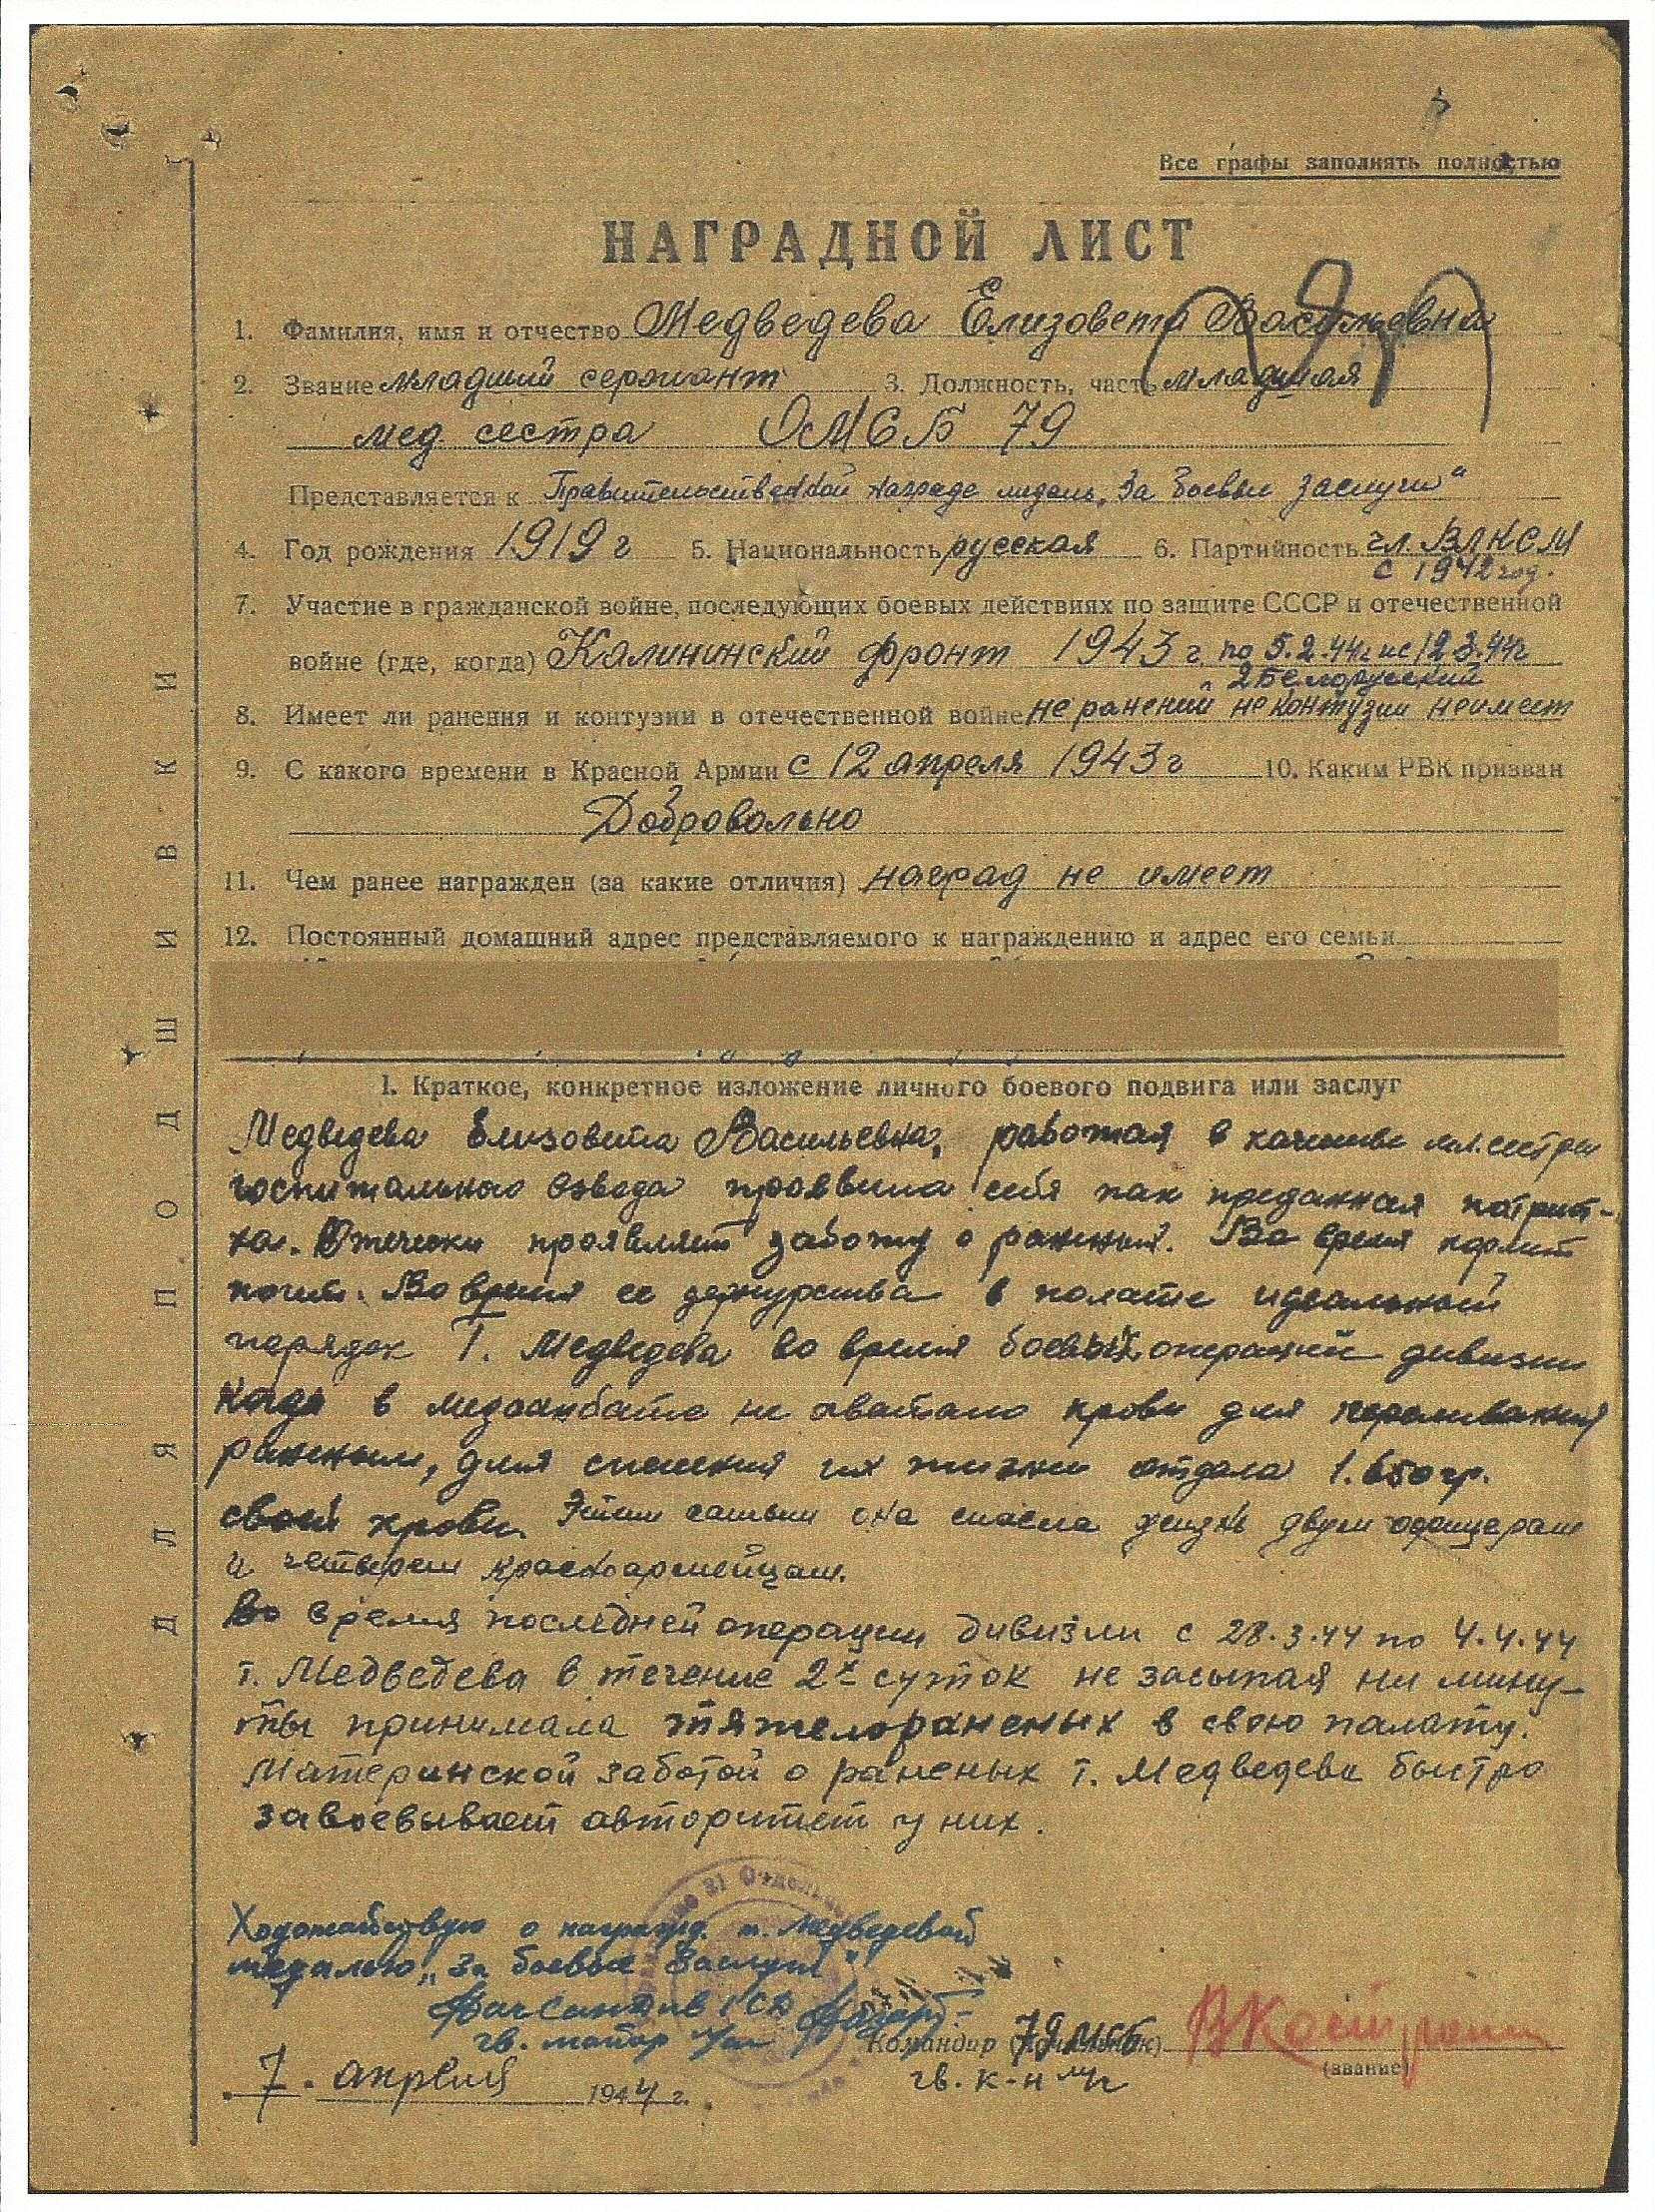 Все графы заполнять полностью
НАГРАДНОЙ ЛИСТ
1. Фамилия, имя и отчество Медведева Елизовета Васильевна
2. Звание младший сержант 3. Должность, часть младшая
мед. сестра ОМСБ 79
Представляется к Правительственной награде медаль „За боевые заслуги“
4. Год рождения 1919 г 5. Национальность русская 6. Партийность чл. ВЛКСМ
с 1942 год.
7. Участие в гражданской войне, последующих боевых действиях по защите СССР и отечественной
войне (где, когда) Калининский фронт 1943 г по 5.2.44г ис 12.3.44г
2 Белорусский
8. Имеет ли ранения и контузии в отечественной войне не ранений не контузии неимеет
9. С какого времени в Красной Армии с 12 апреля 1943 г 10. Каким РВК призван
Добровольно
11. Чем ранее награжден (за какие отличия) наград не имеет
12. Постоянный домашний адрес представляемого к награждению и адрес его семьи
I. Краткое, конкретное изложение личного боевого подвига или заслуг
Медведева Елизовета Васильевна, работая в качестве мл. сестры
госпитального взвода проявила себя как преданная патриот-
ка. проявляет заботу о раненых. Во время кормит
поит. Во время ее дежурства в полате идеальный
порядок Т. Медведева во время боевых операций дивизии
когда в медсанбате не хватало крови для переливания
раненым, для спасения их жизни отдала 1.650 гр.
своей крови. Этим самым она спасла жизнь двум офицерам
и четверем красноармейцам.
Во время последней операции дивизии с 28.3.44 по 4.4.44
т. Медведева в течение 2х суток не засыпая ни мину-
ты принимала тяжелораненых в свою палату.
Материнской заботой о раненых т. Медведева быстро
завоевывает авторитет у них.
Ходотайствую о награжд. т. Медведевой
медалью „За боевые заслуги“
Начсандив 1 СД
гв. майор м/с
Командир 79 МСБ
гв. к-н м/с
(звание)
7. апреля 1944 г.
ДЛЯ ПОДШИВКИ